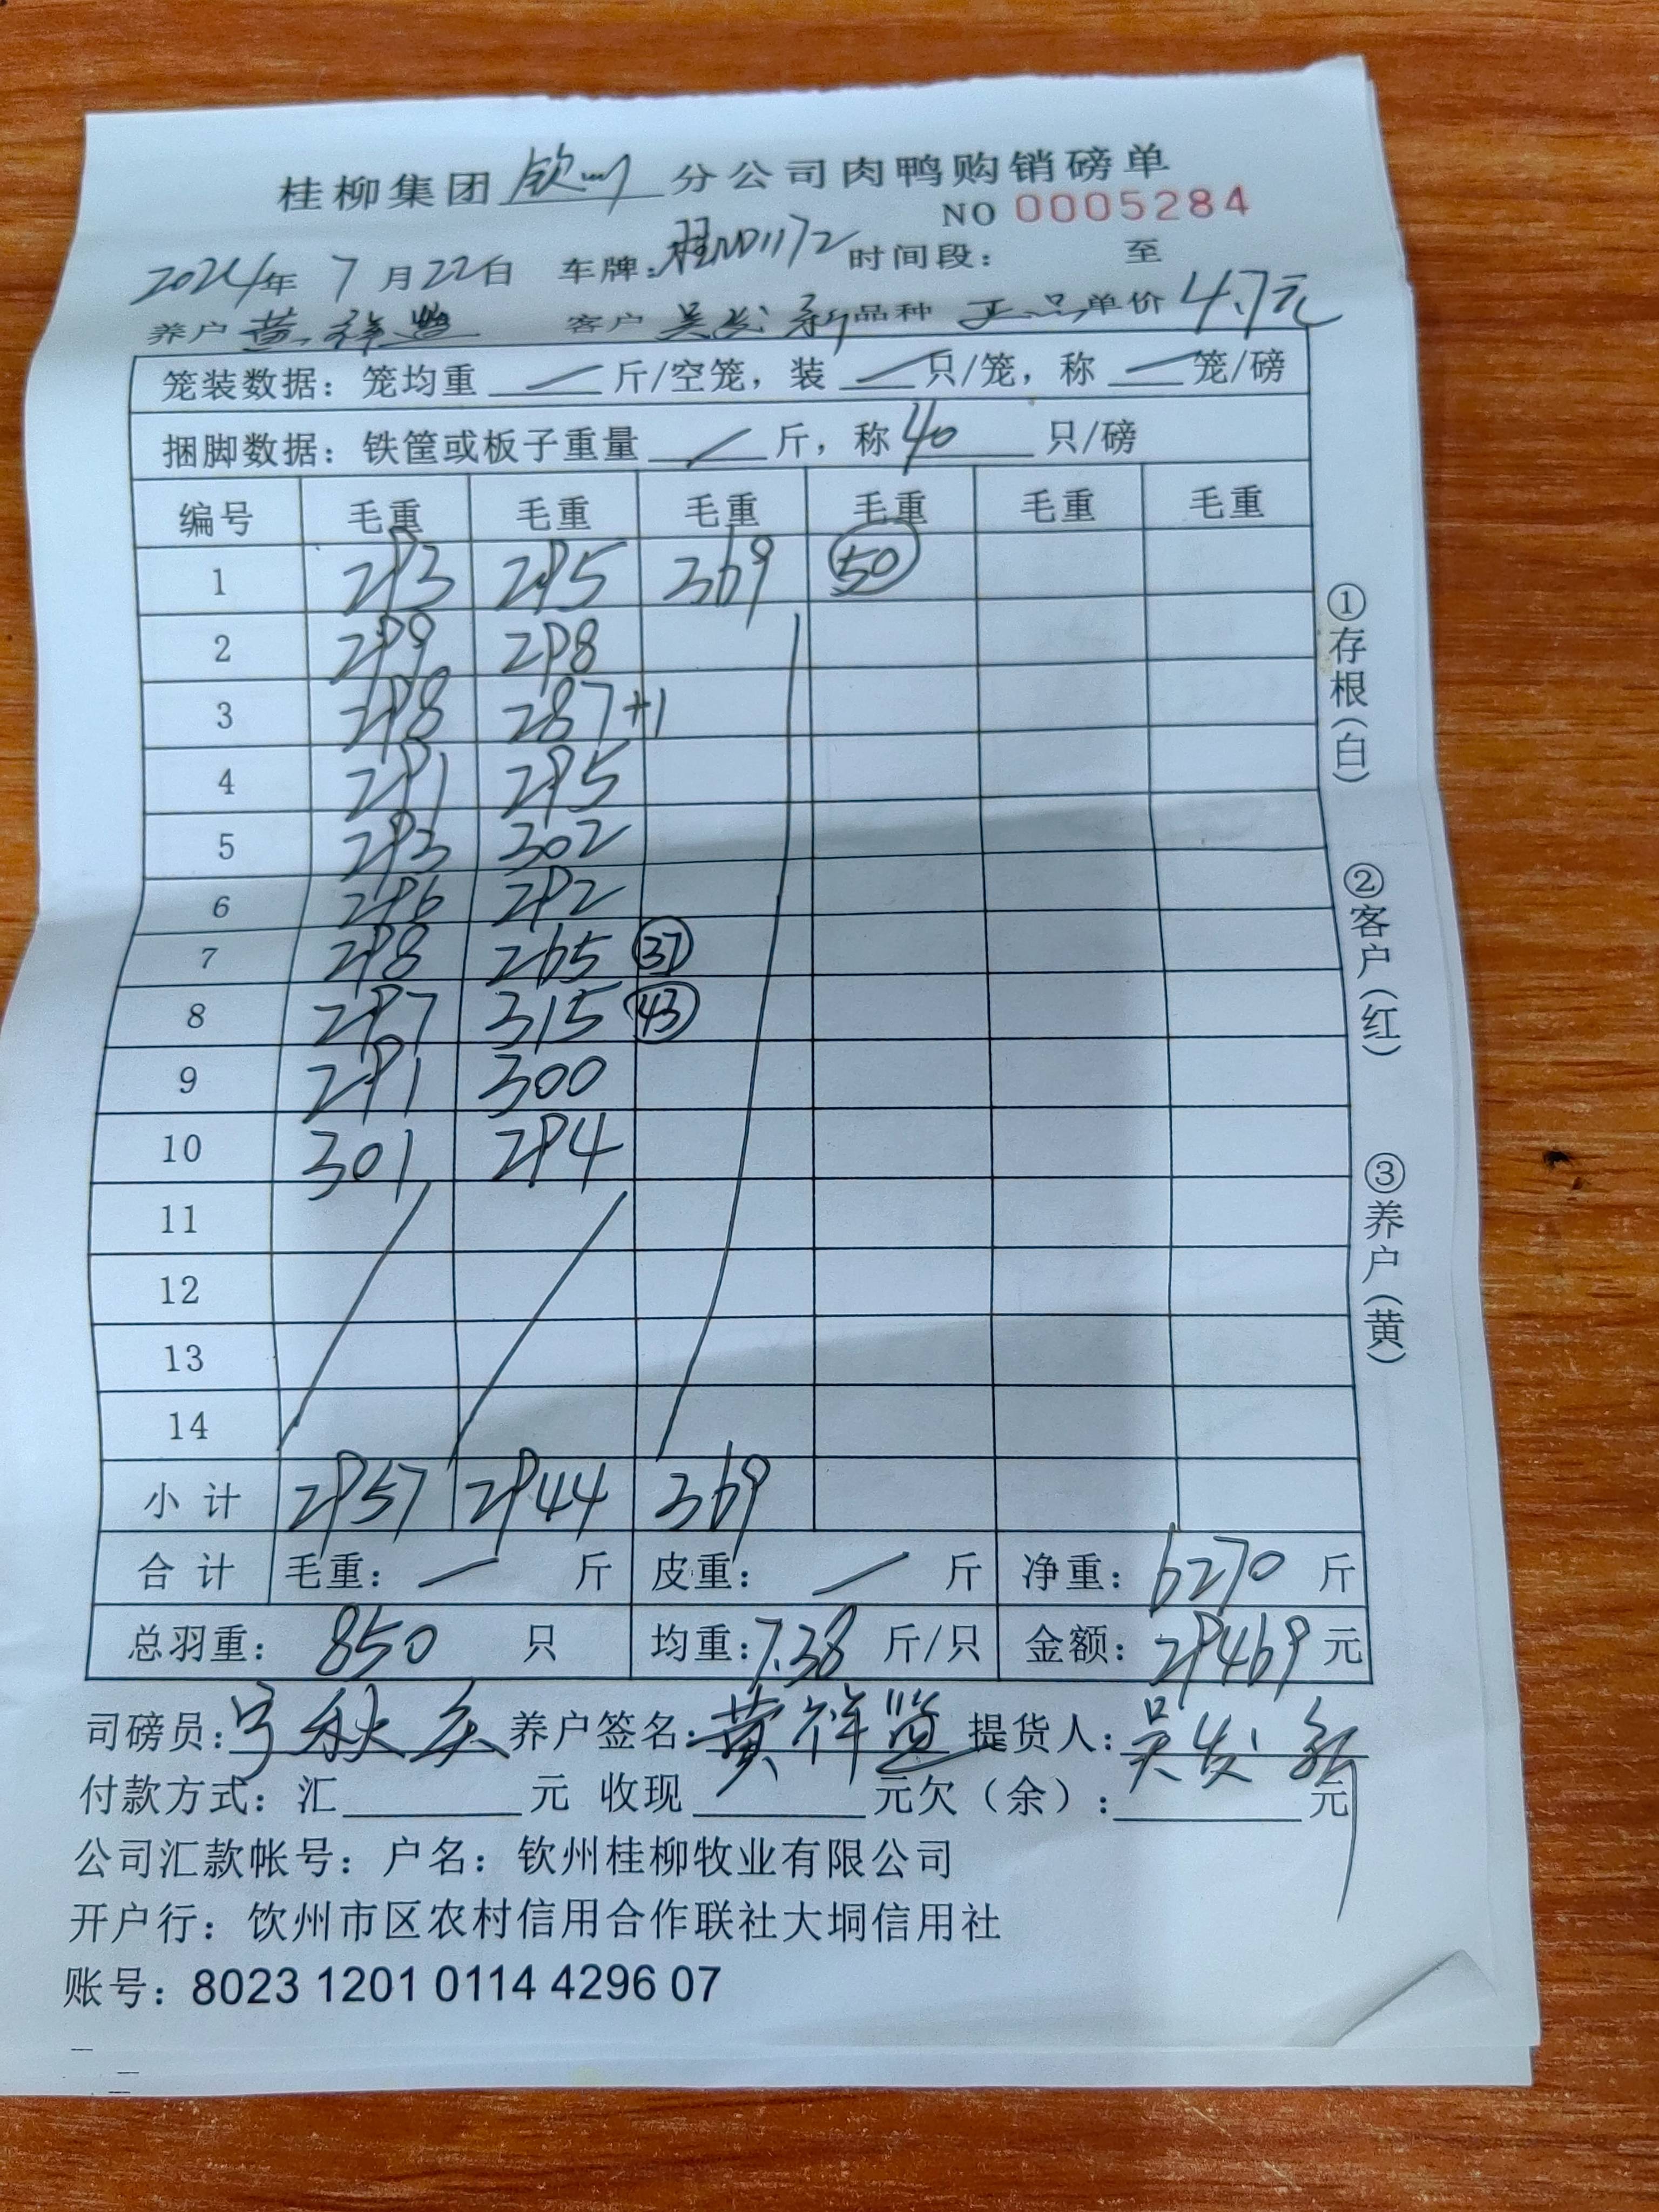 桂柳集团 钦州 分公司肉鸭购销磅单
NO 0005284
2024年 7月22日 车牌:桂ND1172 时间段: 至
养户 黄祥 客户 吴发新 品种 正品 单价 4.7元
笼装数据: 笼均重 / 斤/空笼, 装 / 只/笼, 称 / 笼/磅
捆脚数据: 铁筐或板子重量 / 斤, 称 40 只/磅
编号 毛重 毛重 毛重 毛重 毛重 毛重
1 293 295 369 50
2 299 298
3 298 287+1
4 291 295
5 293 302
6 296 292
7 298 265 37
8 287 315 43
9 291 300
10 301 294
11
12
13
14
小计 2957 2944 369
合计 毛重: / 斤 皮重: / 斤 净重: 6270 斤
总羽重: 850 只 均重: 7.38 斤/只 金额: 29469 元
司磅员: 宁秋 养户签名: 黄祥 提货人: 吴发新
付款方式: 汇 元 收现 元欠(余): 元
公司汇款帐号: 户名: 钦州桂柳牧业有限公司
开户行: 钦州市区农村信用合作联社大垌信用社
账号: 8023 1201 0114 4296 07
①存根(白) ②客户(红) ③养户(黄)